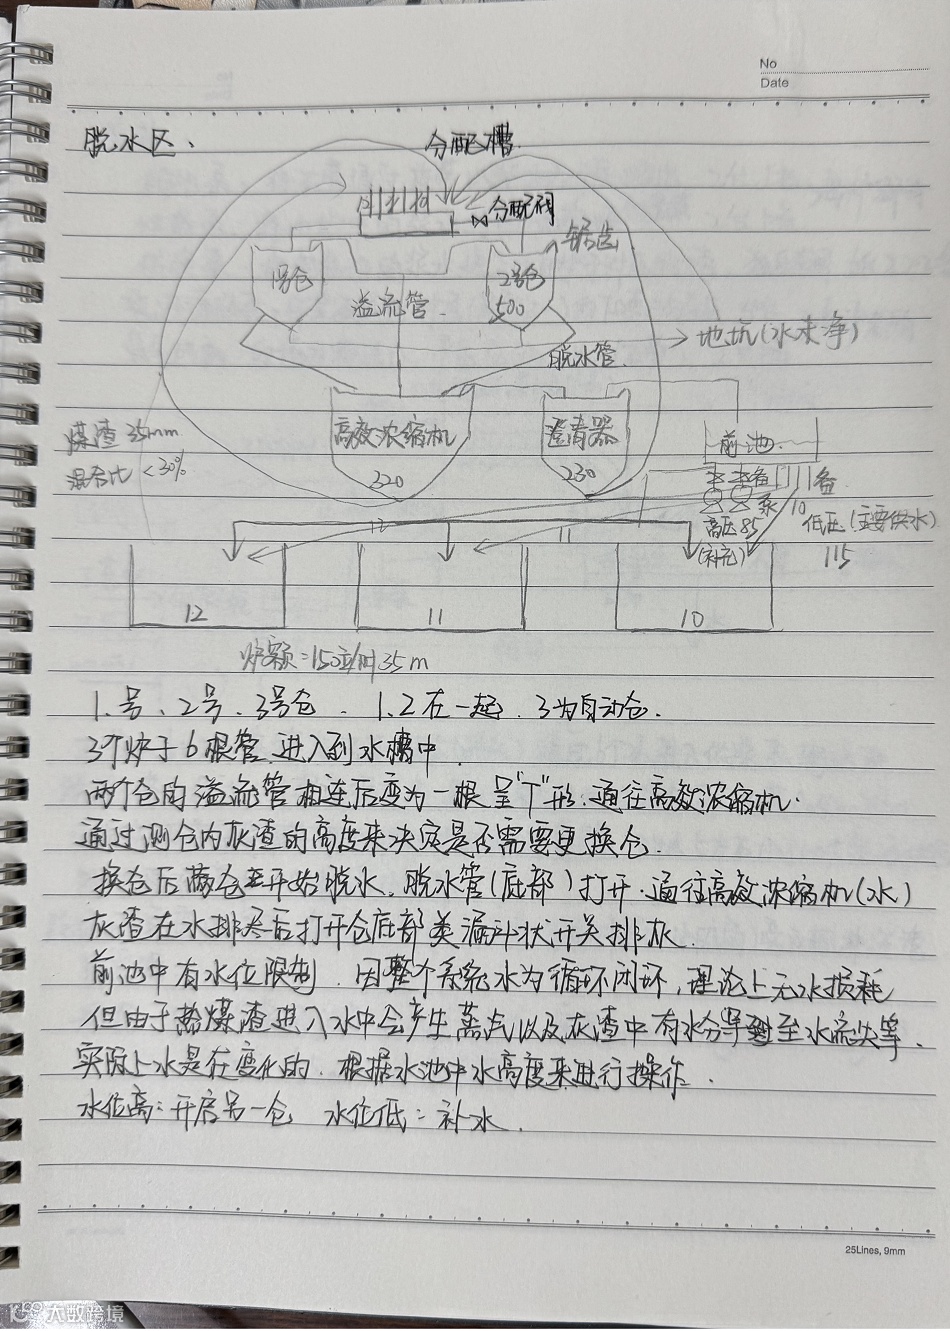 No
Date
脱水区、
分配槽
分配阀
锯齿
1号仓
2号仓
500
溢流管
地坑(水未净)
脱水管
煤渣35mm
混合比<30%
高效浓缩机
220
澄清器
230
前池
备
备
泵
10
高压85
低压(主要供水)
(补充)
115
12
11
12
11
10
35m
1号、2号、3号仓. 1.2在一起. 3为自动仓.
3个炉子6根管进入到水槽中.
两个仓的溢流管相连后变为一根呈"T"形.通往高效浓缩机.
通过测仓内灰渣的高度来决定是否需要更换仓.
换仓后 开始脱水.脱水管(底部)打开.通往高效浓缩机(水)
灰渣在水排尽后打开仓底部类漏斗状开关排灰.
前池中有水位限制.因整个系统水为循环闭环,理论上无水损耗
但由于热煤渣进入水中会产生蒸汽以及灰渣中有水分 至水流失等.
实际上水是在变化的.根据水池中水高度来进行操作.
水位高:开启另一仓 水位低:补水.
25Lines, 9mm
大数跨境